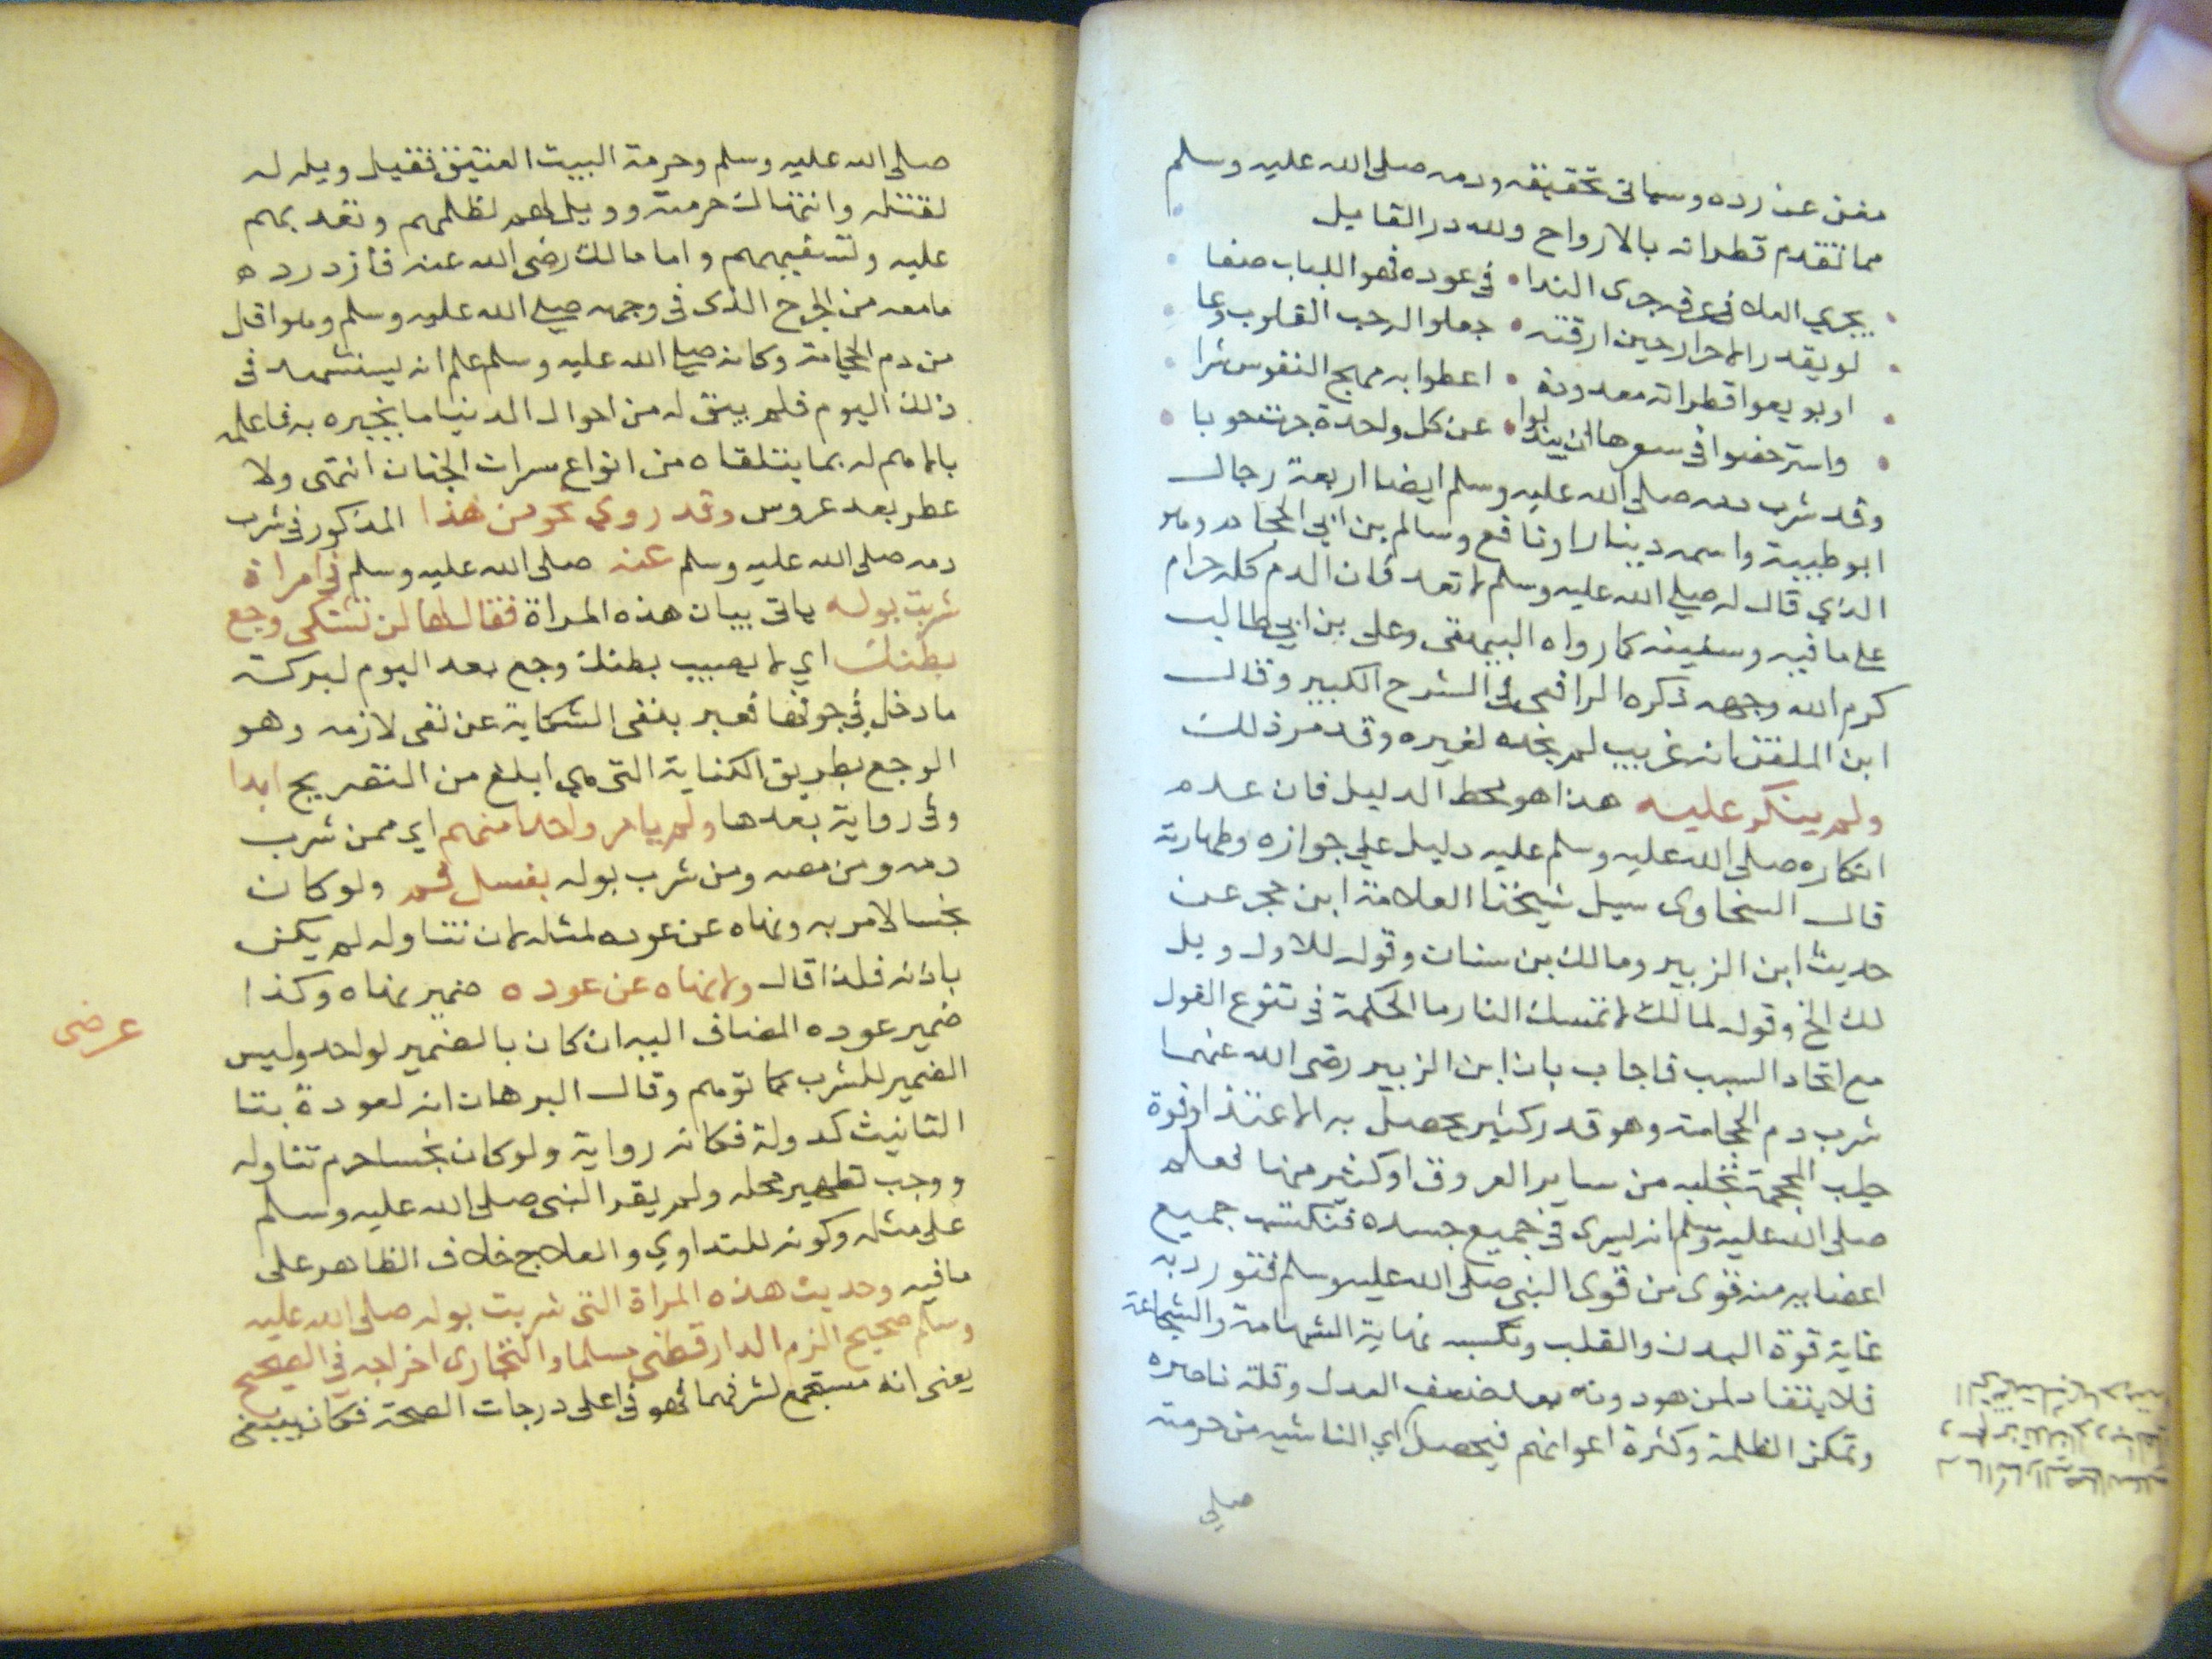 مغن عن رده وسياتى تحقيقه ودمه صلى الله عليه وسلم
مما تقدم قطراته بالارواح ولله در القايل
يجري العلا في عرقه جرى الندا • في عوده فهو اللباب صفا
لو يقدر الاحرار حين ارقته • جعلوا له حب القلوب وعا
او بويعوا قطراته معدودة • اعطوا به مهج النفوس شرا
واسترخصوا في سعرها ان يبذلوا • عن كل واحدة جرت حوبا
وقد شرب دمه صلى الله عليه وسلم ايضا اربعة رجال
ابو طيبة واسمه دينار او نافع وسالم بن ابي الحجام وهو
الذي قال له صلى الله عليه وسلم لا تعد فان الدم كله حرام
على ما فيه وسفينه كما رواه البيهقى وعلى بن ابي طالب
كرم الله وجهه ذكره الرافعى في الشرح الكبير وقال
ابن الملقن انه غريب لم نجده لغيره وقد مر ذلك
ولم ينكر عليه هذا هو محط الدليل فان عدم
انكاره صلى الله عليه وسلم عليه دليل على جوازه وطهارته
قال السخاوى سيل شيخنا العلامة ابن حجر عن
حديث ابن الزبير ومالك بن سنان وقوله للاول ويل
لك الخ وقوله لمالك لا تمسك النار ما الحكمة في تنوع القول
مع اتحاد السبب فاجاب بان ابن الزبير رضى الله عنهما
شرب دم الحجامة وهو قدر كثير يحصل به الاغتذا وقوة
جلب المحجمة تجلبه من ساير العروق او كثير منها فعلم
صلى الله عليه وسلم انه ليسرى في جميع جسده فتكتسب جميع
اعضايه منه قوى من قوى النبى صلى الله عليه وسلم فتورد به
غاية قوة البدن والقلب وتكسبه نهاية الشهامة والشجاعة
فلا ينقاد لمن هو دونه بعد ضعف العدل وقلة ناصره
وتمكن الظلمة وكثرة اعوانهم فيحصل اي الناشيه من حرمته
صلى
صلى الله عليه وسلم وحرمة البيت العتيق فقيل ويل له
لقتله وانتهاك حرمته وويل لهم لظلمهم وتعديهم
عليه وتسفيههم واما مالك رضى الله عنه فازدرد
ما مصه من الجرح الذى في وجهه صلى الله عليه وسلم وهو اقل
من دم الحجامة وكانه صلى الله عليه وسلم علم انه يستشهد في
ذلك اليوم فلم يبق له من احوال الدنيا ما يخبره به فاعلمه
بالاهم له بما يتلقاه من انواع مسرات الجنان انتهى ولا
عطر بعد عروس وقد روي نحو من هذا المذكور في شرب
دمه صلى الله عليه وسلم عنه صلى الله عليه وسلم في امراة
شربت بوله ياتى بيان هذه المراة فقال لها لن تشتكى وجع
بطنك اي لا يصيب بطنك وجع بعد اليوم لبركة
ما دخل في جوفها فعبر بنفى الشكاية عن نفى لازمه وهو
الوجع بطريق الكناية التى هي ابلغ من التصريح ابدا
وفى رواية بعدها ولم يامر واحدا منهم اي ممن شرب
دمه ومن مصه ومن شرب بوله بغسل فمه ولو كان
نجسا لامر به ونهاه عن عوده لمثله لان تناوله لم يكن
باذنه فلذا قال ولا نهاه عن عوده ضمير نهاه وكذا
ضمير عوده المضاف اليه ان كان بالضمير لواحد وليس
عرضى
الضمير للشرب كما توهم وقال البرهان انه لعودة بتا
التانيث كدولة فكانه رواية ولو كان نجسا حرم تناوله
ووجب تطهير محله ولم يقر النبى صلى الله عليه وسلم
على مثله وكونه للتداوي والعلاج خلاف الظاهر على
ما فيه وحديث هذه المراة التى شربت بوله صلى الله عليه
وسلم صحيح الزم الدارقطنى مسلما والبخارى اخراجه في الصحيح
يعنى انه مستجمع لشرطهما فهو في اعلى درجات الصحة فكان ينبغى